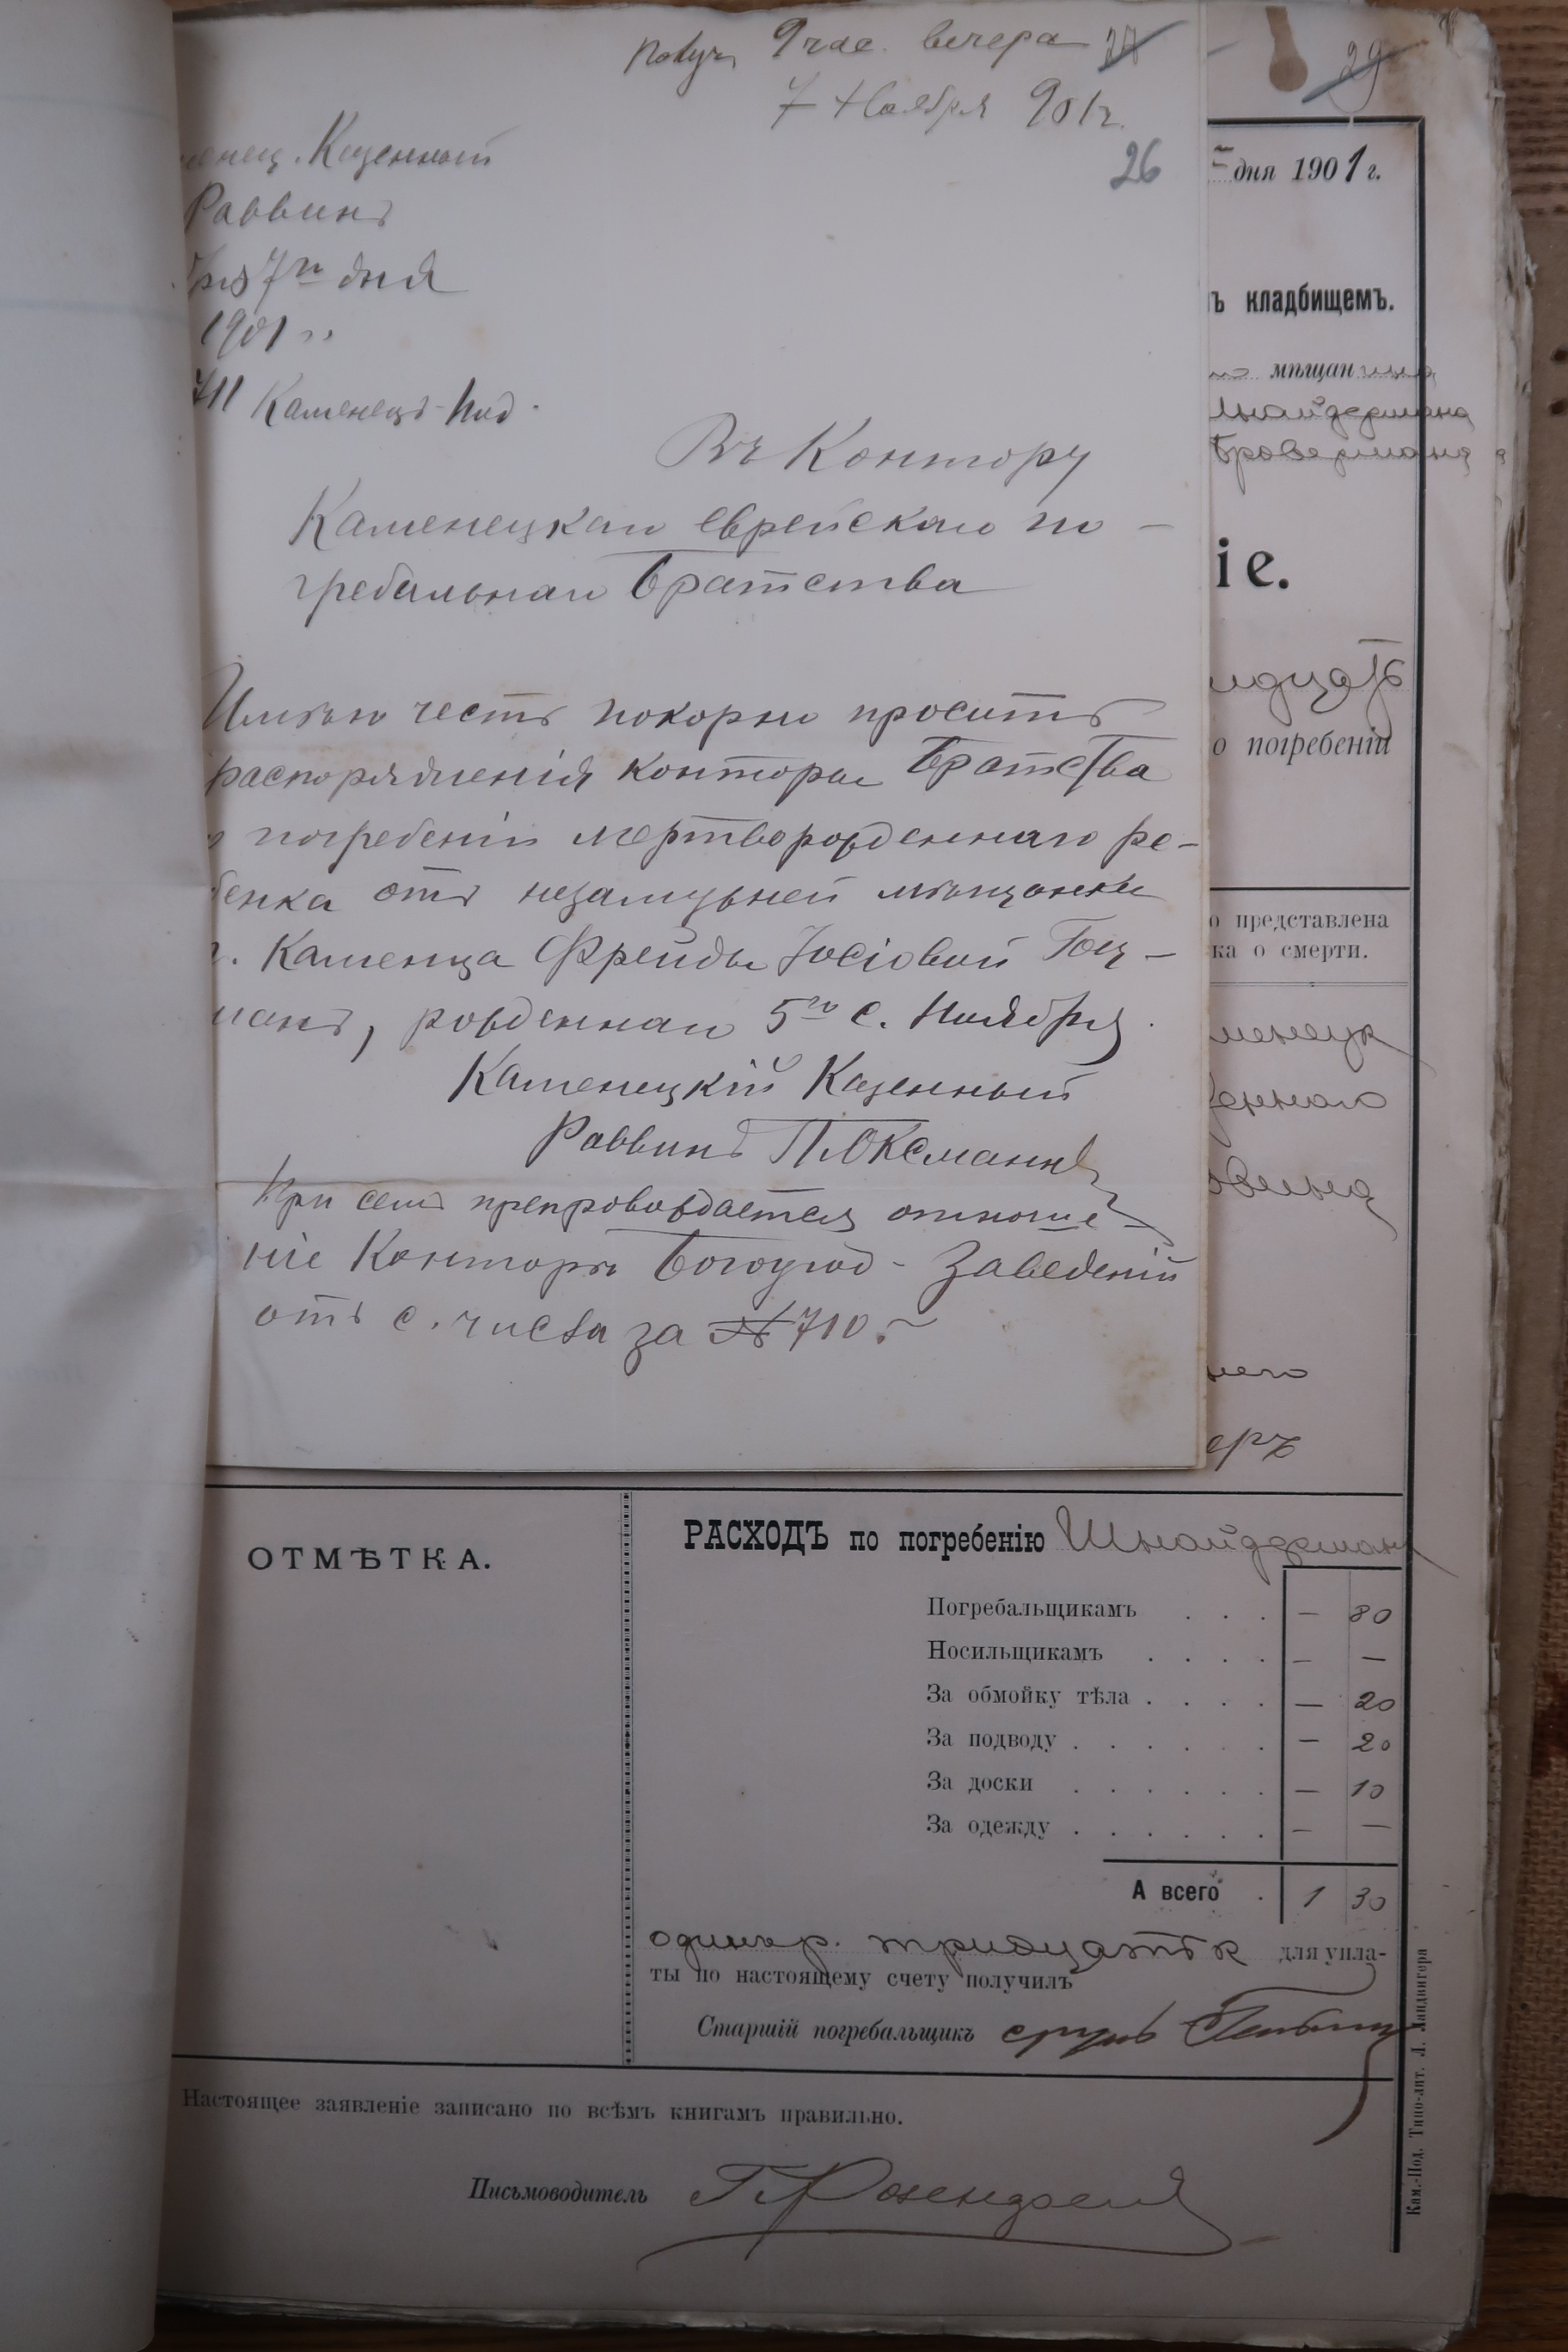 Получ. 9 час. вечера
7 Ноября 901 г.
27
26
29
Казенный
Раввинъ
7го дня
1901 г.
711 Каменецъ-Под.
Въ Контору
Каменецкаго еврейскаго по-
гребальнаго Братства
Имѣю честь покорно просить
распоряженія конторы Братства
о погребеніи мертворожденнаго ре-
бенка отъ незамужней мѣщанки
г. Каменца Фрейды Іосіовой Гоц-
манъ, рожденнаго 5го с. Ноября.
Каменецкій Казенный
Раввинъ П. Оксманъ
При семъ препровождается отноше-
ніе Конторы Богоугод. Заведеній
отъ с. числа за № 710.
дня 1901 г.
ъ кладбищемъ.
мѣщанина
іе.
о погребеніи
о представлена
ка о смерти.
ОТМѢТКА.
РАСХОДЪ по погребенію Шнайдерманъ
Погребальщикамъ . . . — 80
Носильщикамъ . . . . — —
За обмойку тѣла . . . . — 20
За подводу . . . . . . — 20
За доски . . . . . . — 10
За одежду . . . . . . — —
А всего . 1 30
одинъ р. тридцать к для упла-
ты по настоящему счету получилъ
Старшій погребальщикъ
Настоящее заявленіе записано по всѣмъ книгамъ правильно.
Письмоводитель
Кам.-Под. Типо-лит. Л. Ландвигера